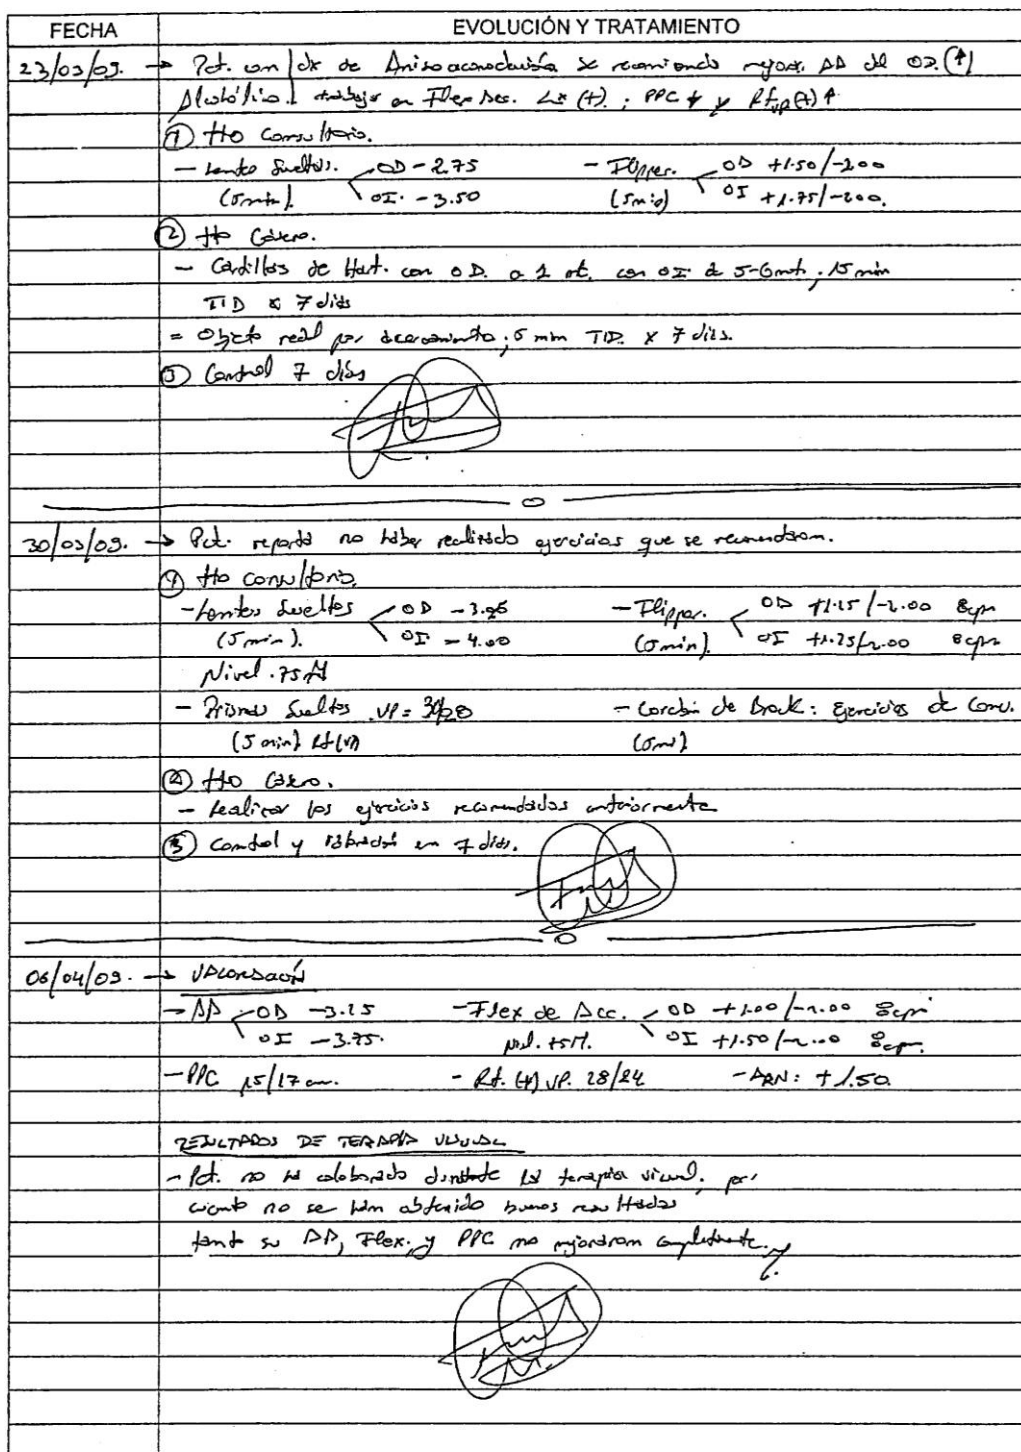 FECHA EVOLUCIÓN Y TRATAMIENTO
23/03/09. → Pct. con dx de Anisoacomodación se recomienda mejorar AA del OD (↑)
trabajar en Flex Acc. Lx (+). ; PPC ↓ y Rf VP (+) ↑
① tto Consultorio.
- Lentes Sueltos. OD - 2.75 - Flipper. OD +1.50/-2.00
(5min). OI. - 3.50 (5min) OI +1.75/-2.00.
② tto Casero.
- Cartillas de Hart. con OD. a 1 mt. con OI. a 5-6 mt, 15 min
TID x 7 días
= Objeto real por acercamiento; 5 min TID. x 7 días.
③ Control 7 días
30/03/09. → Pct. reporta no haber realizado ejercicios que se recomendaron.
① tto consultorio.
- Lentes Sueltos OD - OD /-2.00 8cpm
(5min). OI - 4.00 - Flipper. (5min). OI +1.25/-2.00 8cpm
Nivel .75M
- Prismas Sueltos .VP = 30/20 - Cordón de Brock: Ejercicios de Conv.
(5 min) Rf(+) (5min)
② tto Casero.
- Realizar los ejercicios recomendados anteriormente
③ Control y valoración en 7 días.
06/04/09. → VALORACIÓN
- AA OD -3.25 - Flex de Acc. OD +1.00/-2.00 8cpm
OI -3.75. OI +1.50/-2.00 8cpm.
- PPC 15/17 cm. - Rf. (+) VP. 28/24 - ARN: +1.50.
RESULTADOS DE TERAPIA VISUAL
- Pct. no ha colaborado durante la terapia visual. por
cuanto no se han obtenido buenos resultados
tanto su AA, Flex. y PPC no mejoraron completamente.